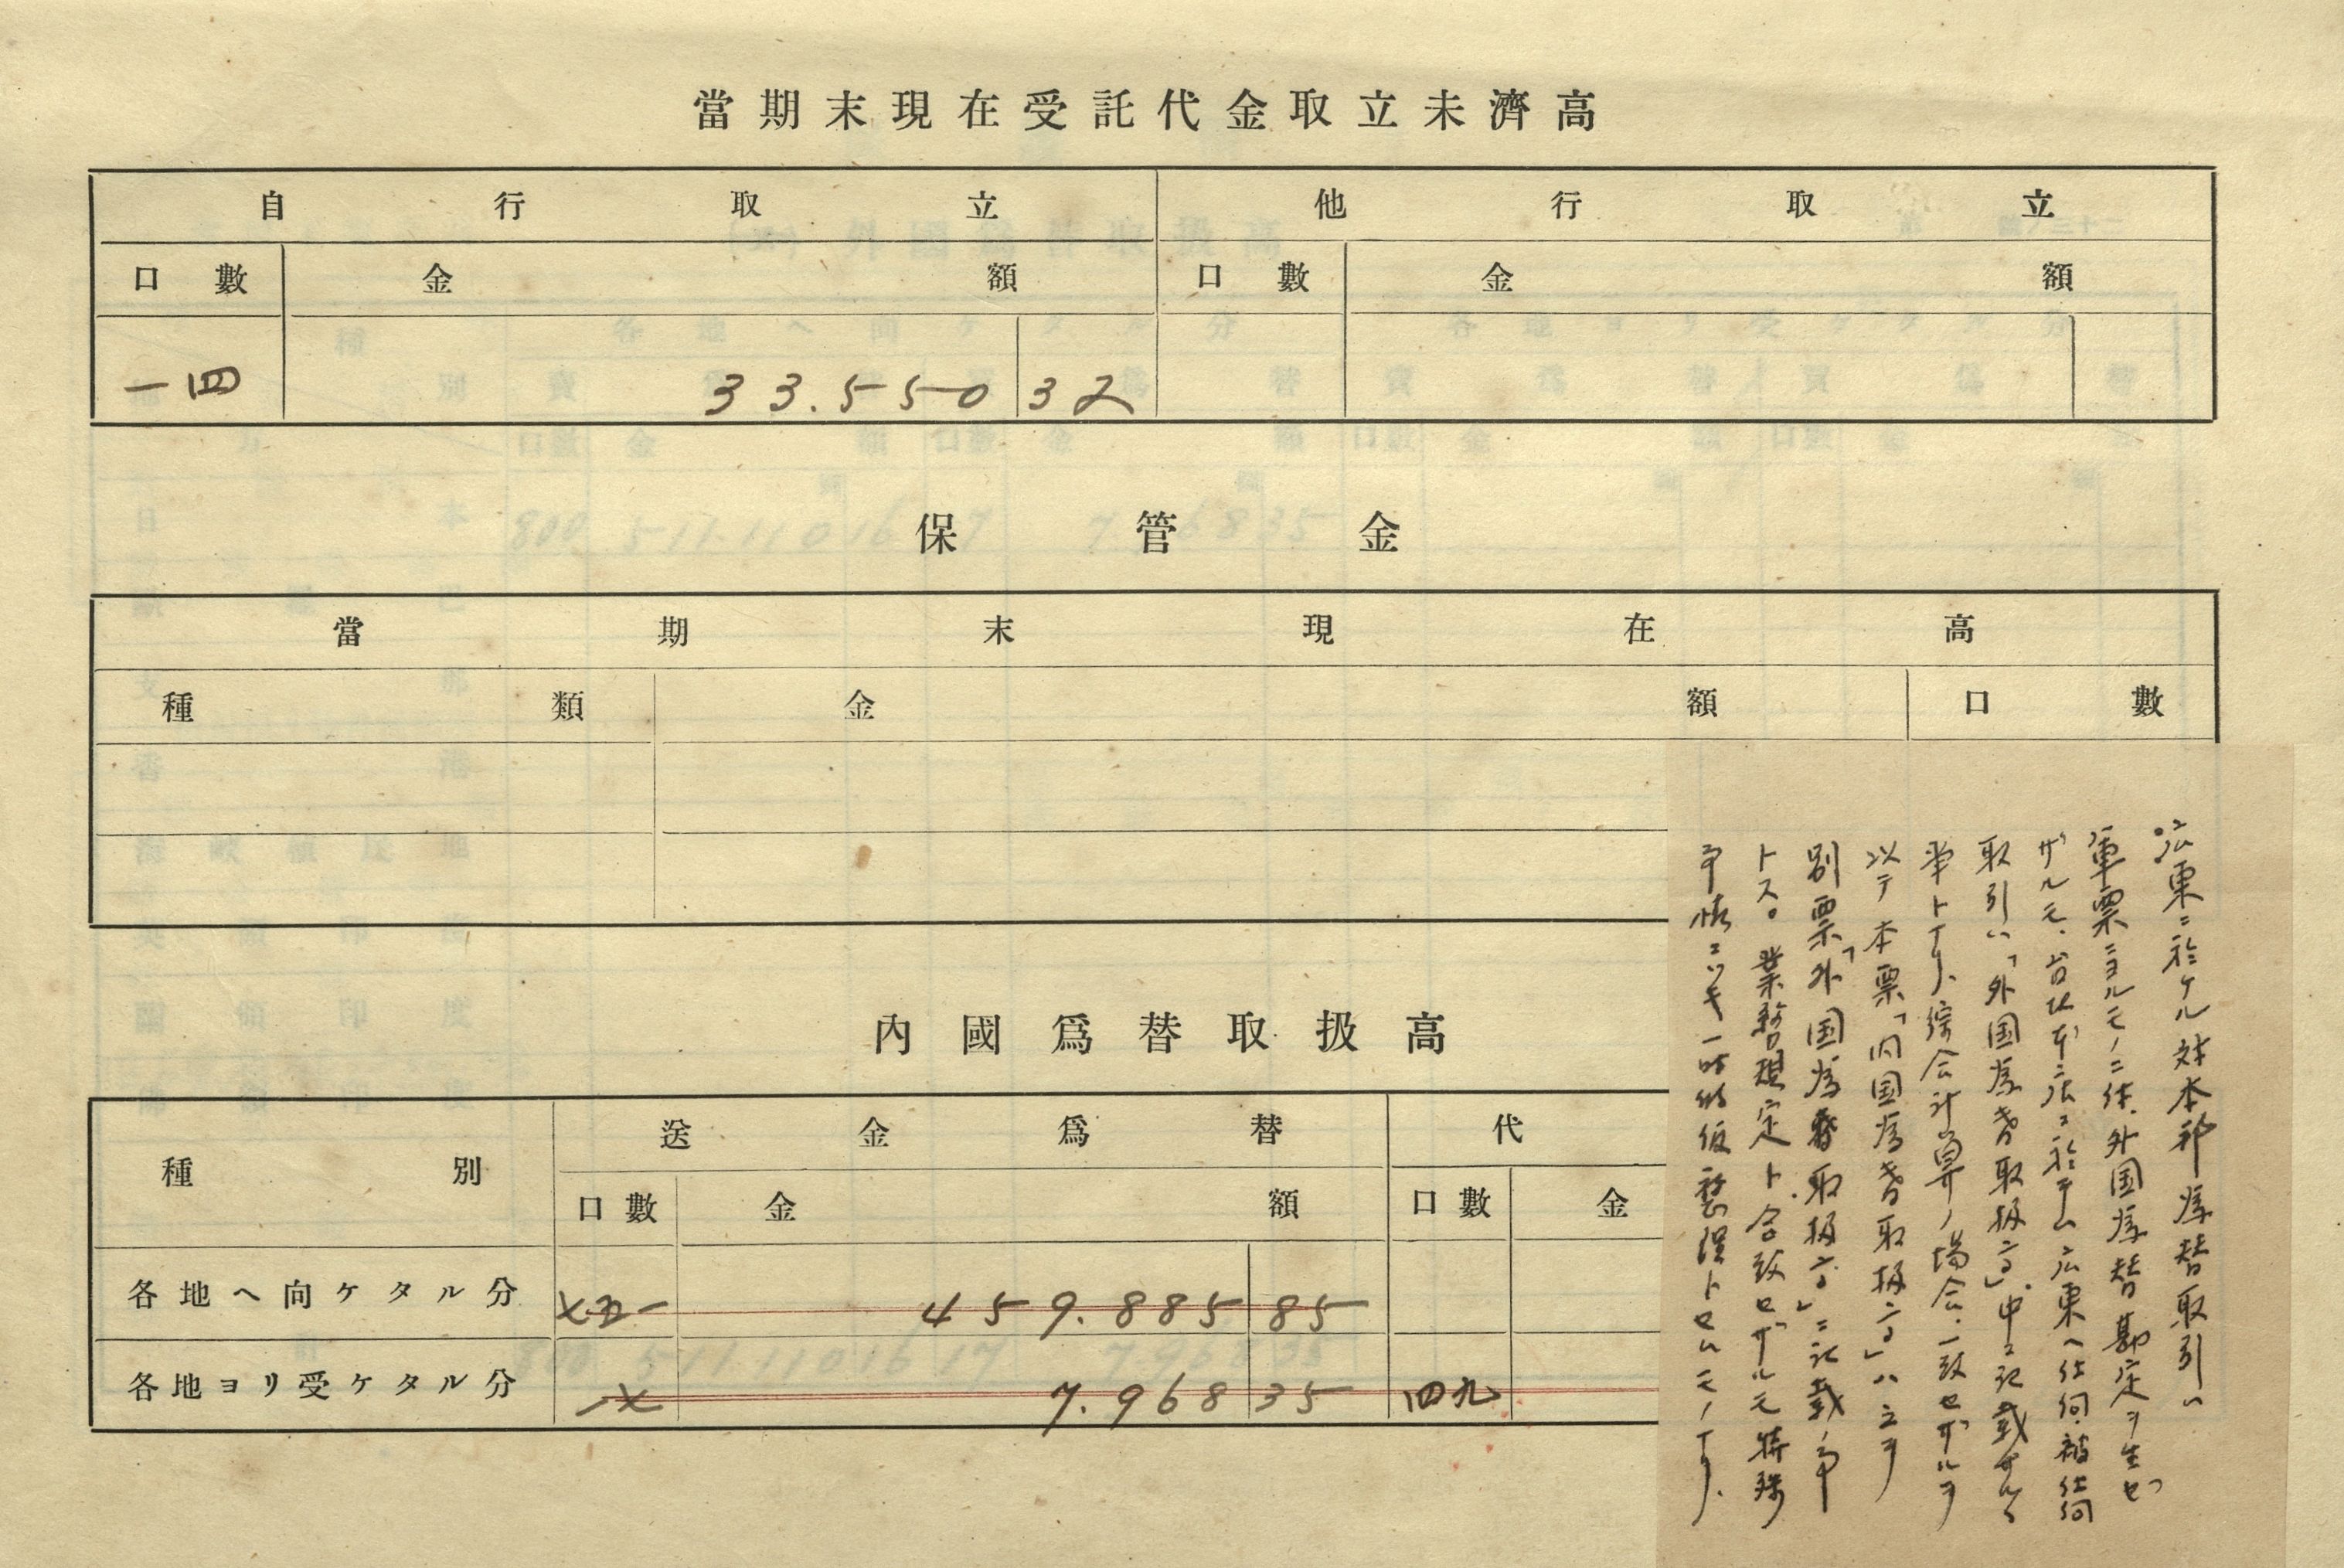 當期末現在受託代金取立未濟高
自行取立 他行取立
口數 金額 口數 金額
一四 33.550 32
保管金
當期末現在高
種類 金額 口數
內國爲替取扱高
種別 送金爲替 代
口數 金額 口數 金
各地ヘ向ケタル分 七五一 459.885 85
各地ヨリ受ケタル分 一七 7.968 35 四九
広東ニ於ケル対本邦為替取引ハ
軍票ニヨルモノニ付、外国為替勘定ヲ生ゼ
ザルモ、台北本広ニ於テハ広東ヘ仕向、被仕向
取引ハ「外国為替取扱高」中ニ記載サルヽ
筈トナリ、綜合計算ノ場合、一致セザルヲ
以テ本票「内国為替取扱高」ハ之ヲ
別票「外国為替取扱高」ニ記載ノ事
トス。業務規定ト合致セザルモ特殊
事情ニツキ一時的仮整理トセルモノナリ、